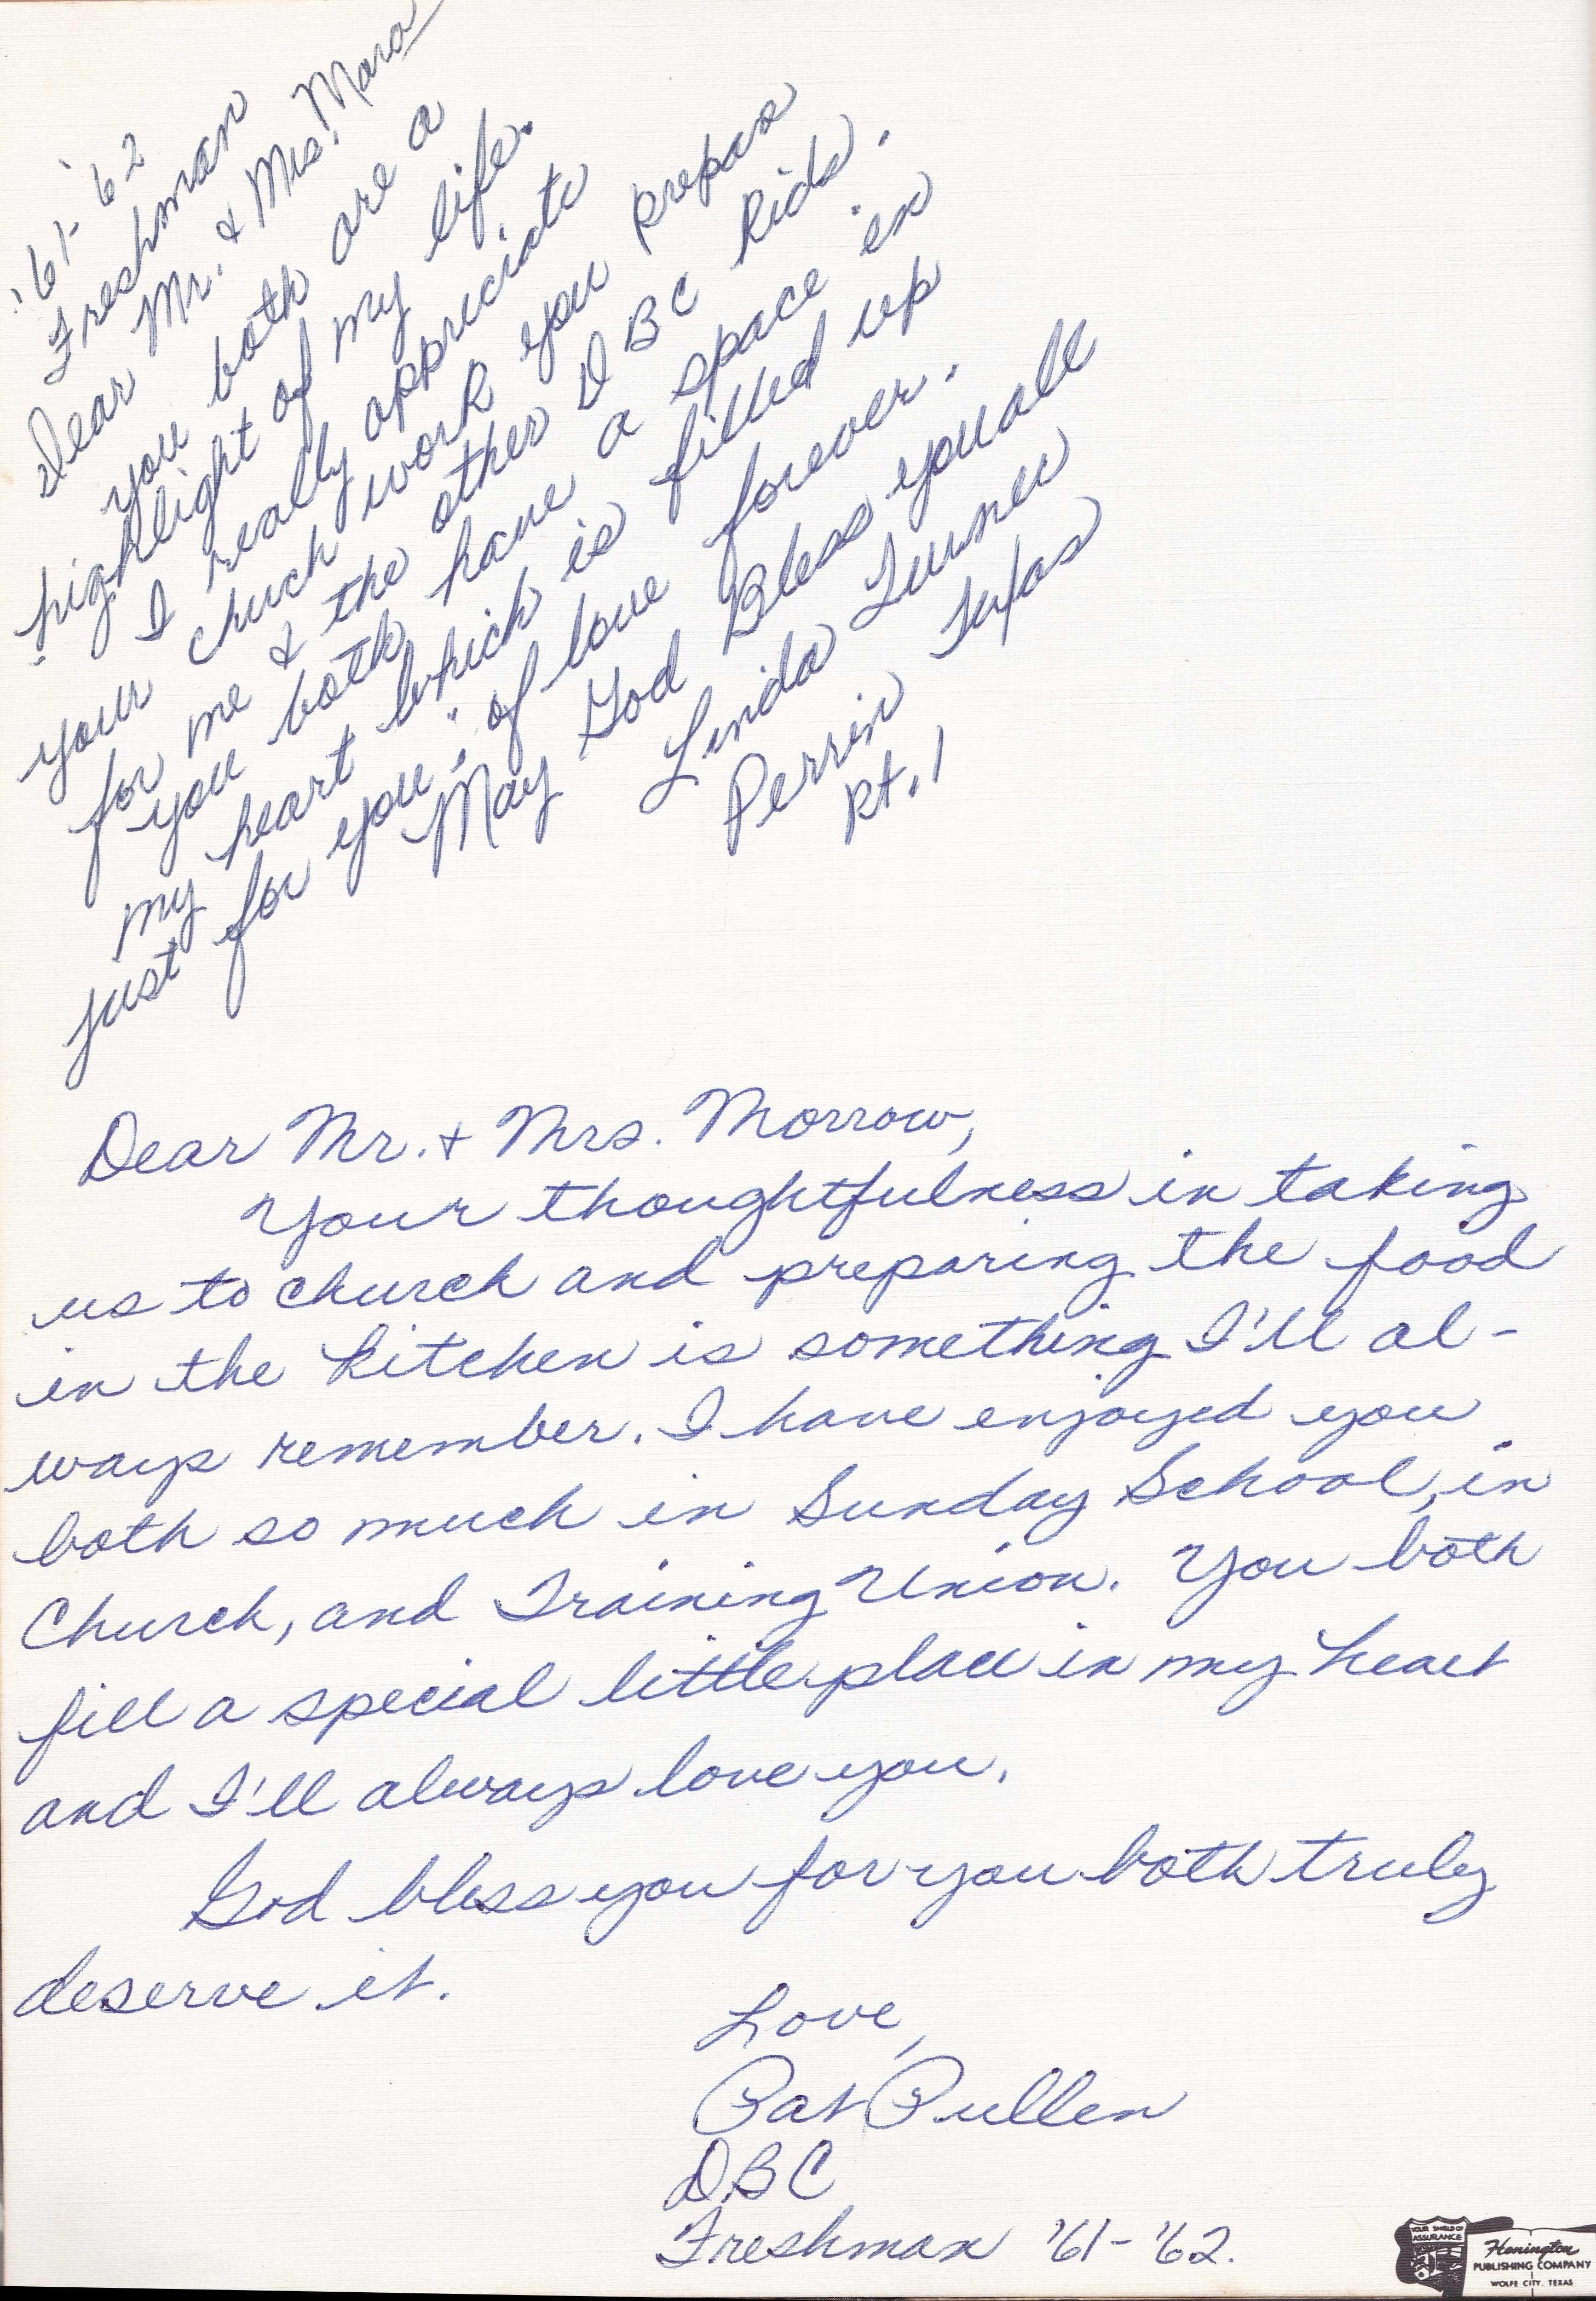 '61-'62
Freshman
Dear Mr. & Mrs. Maro
you both are a
highlight of my life.
I really appriciate
your chuch work you prepare
for me & the other DBC Kids.
you both have a space in
my heart which is filled up
just for you; of love forever.
May God Bless you all
Linda Turner
Perrin Texas
Rt. 1
Dear Mr. & Mrs. Morrow,
Your thoughtfulness in taking
us to church and preparing the food
in the kitchen is something I'll al-
ways remember. I have enjoyed you
both so much in Sunday School, in
Church, and Training Union. You both
fill a special little place in my heart
and I'll always love you.
God bless you for you both truly
deserve it.
Love,
Pat Pullen
DBC
Freshman '61-'62.
YOUR SHIELD OF
ASSURANCE
Henington
PUBLISHING COMPANY
WOLFE CITY, TEXAS